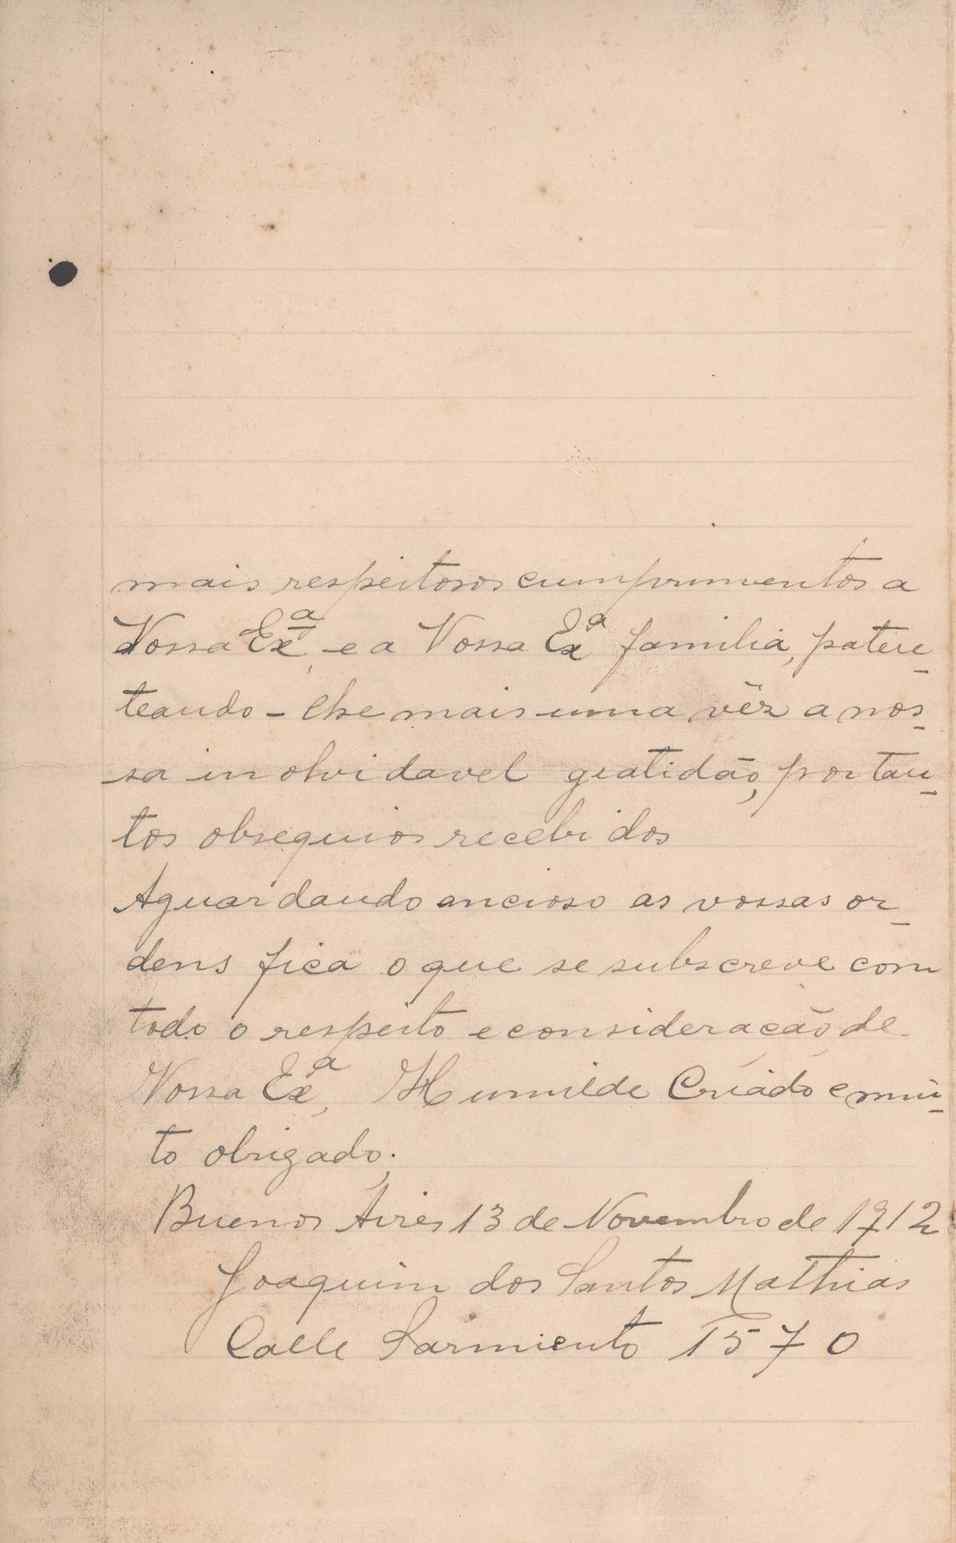 mais respeitosos cumprimentos a
Vossa Exª, e a Vossa Exª familia, paten-
teando-lhe mais uma vêz a nos-
sa inolvidavel gratidão, por tan-
tos obsequios recebidos
Aguardando ancioso as vossas or-
dens fica o que se subscreve com
todo o respeito e consideração de
Vossa Exª, Humilde Criado e mui-
to obrigado.
Buenos Aires 13 de Novembro de 1912
Joaquim dos Santos Mathias
Calle Sarmiento 1570